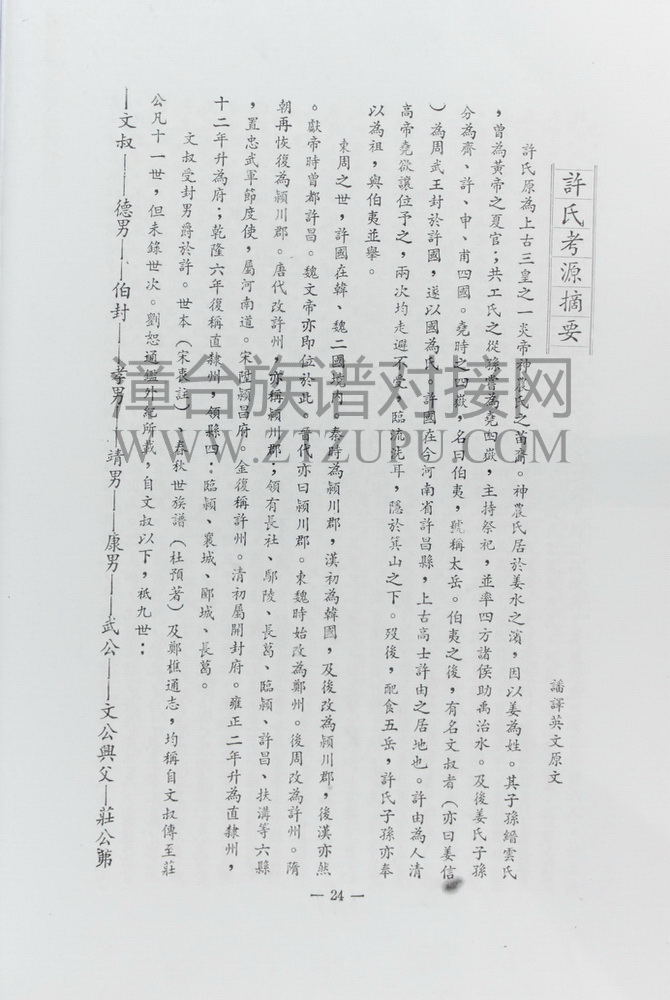 許氏考源摘要
譒譯英文原文
許氏原為上古三皇之一炎帝神農氏之苗裔。神農氏居於姜水之濱，因以姜為姓。其子孫縉雲氏
，曾為黃帝之夏官；共工氏之從孫嘗為堯四嶽，主持祭祀，並率四方諸侯助禹治水。及後姜氏子孫
分為齊、許、申、甫四國。堯時之四嶽，名曰伯夷，號稱太岳。伯夷之後，有名文叔者（亦曰姜信
）為周武王封於許國，遂以國為氏。許國在今河南省許昌縣，上古高士許由之居地也。許由為人清
高帝堯欲讓位予之，兩次均走避不受，臨流洗耳，隱於箕山之下。歿後，配食五岳，許氏子孫亦奉
以為祖，與伯夷並舉。
東周之世，許國在韓、魏二國境內。秦時為潁川郡，漢初為韓國，及後改為潁川郡，後漢亦然
。獻帝時曾都許昌。魏文帝亦即位於此。晉代亦曰潁川郡。東魏時始改為鄭州。後周改為許州。隋
朝再恢復為潁川郡。唐代改許州，亦稱潁川郡；領有長社、鄢陵、長葛、臨潁、許昌、扶溝等六縣
，置忠武軍節度使，屬河南道。宋陞潁昌府。金復稱許州。清初屬開封府。雍正二年升為直隸州，
十二年升為府；乾隆六年復稱直隸州，領縣四：臨潁、襄城、郾城、長葛。
文叔受封男爵於許。世本（宋衷註）、春秋世族譜（杜預著）及鄭樵通志，均稱自文叔傳至莊
公凡十一世，但未錄世次。劉恕通鑑外紀所載，自文叔以下，祇九世：
—文叔——德男——伯封——孝男——靖男——康男——武公——文公興父—莊公茀
— 24 —
漳台族谱对接网
WWW.ZTZUPU.COM